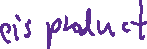 eis product